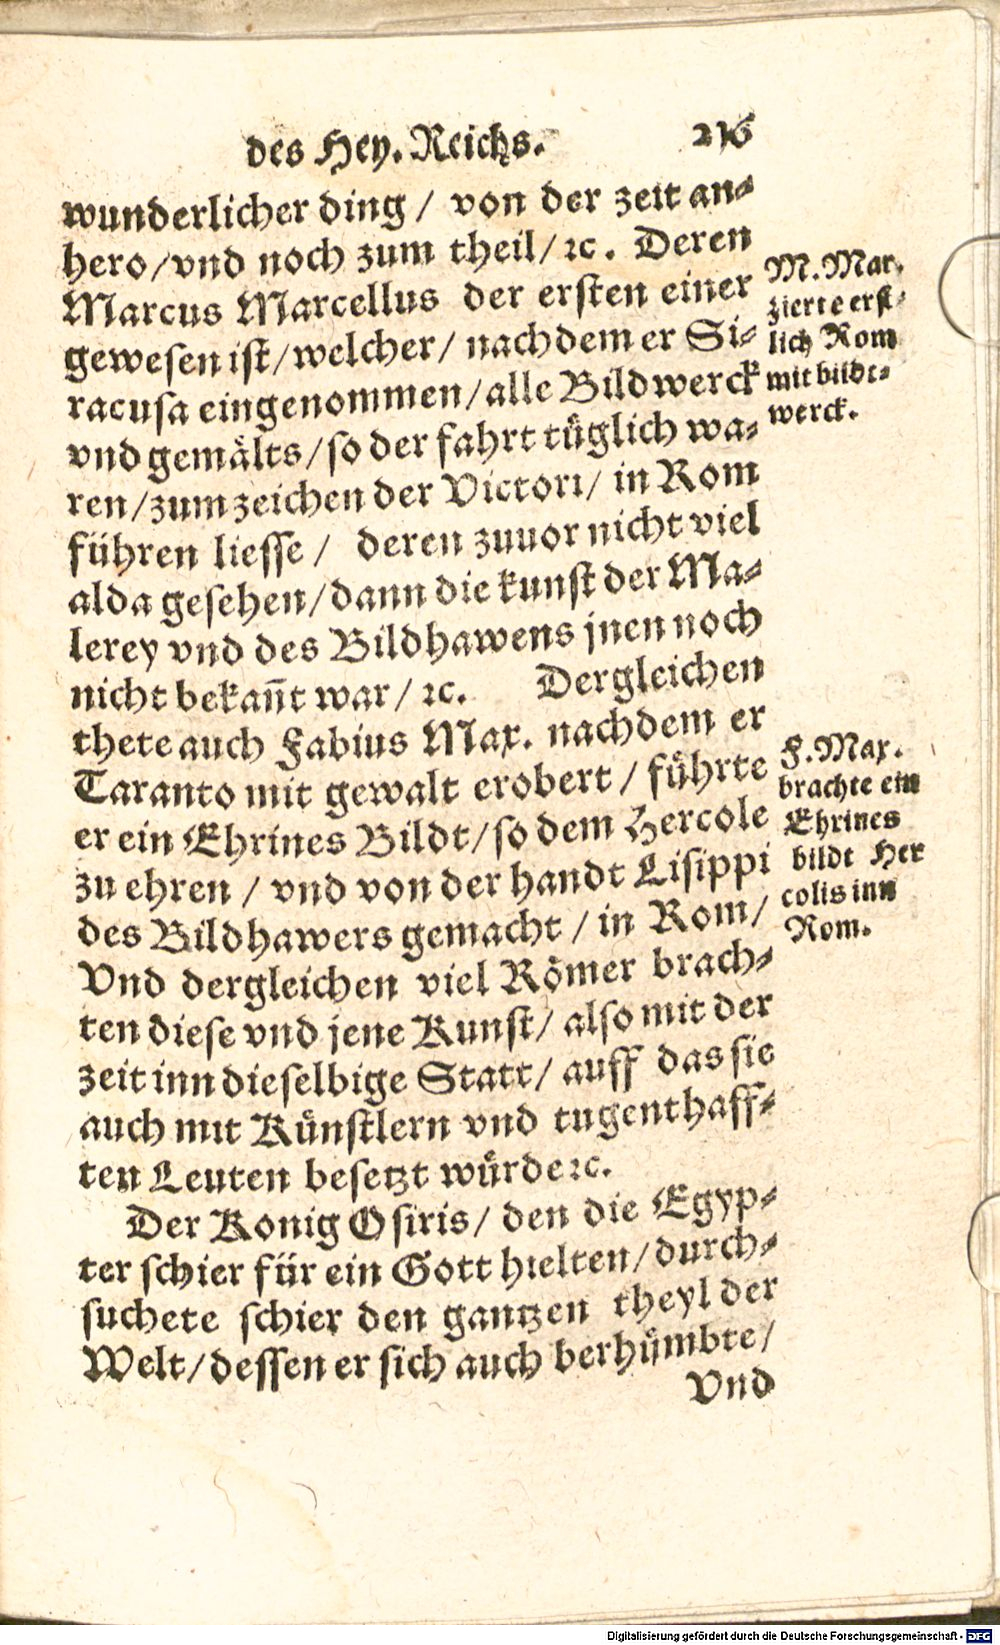 des Hey. Reichs. 216
wunderlicher ding / von der zeit an-
hero/vnd noch zum theil/ ꝛc. Deren
Marcus Marcellus der ersten einer
gewesen ist/welcher/ nachdem er Si-
racusa eingenommen/alle Bildwerck
vnd gemålts/so der fahrt tůglich wa-
ren/zum zeichen der Victori/ in Rom
führen liesse / deren zuuor nicht viel
alda gesehen/dann die kunst der Ma-
lerey vnd des Bildhawens jnen noch
nicht bekañt war/ ꝛc. Dergleichen
thete auch Fabius Max. nachdem er
Taranto mit gewalt erobert / fůhrte
er ein Ehrines Bildt/so dem Hercole
zu ehren / vnd von der handt Lisippi
des Bildhawers gemacht / in Rom/
Vnd dergleichen viel Rőmer brach-
ten diese vnd jene Kunst/ also mit der
zeit inn dieselbige Statt/ auff das sie
auch mit Kůnstlern vnd tugenthaff-
ten Leuten besetzt wůrde ꝛc.
Der Konig Osiris/ den die Egyp-
ter schier für ein Gott hielten/durch-
suchete schier den gantzen theyl der
Welt/dessen er sich auch berhůmbte/
Vnd
M. Mar.
zierte erst-
lich Rom
mit bildt-
werck.
F. Max.
brachte ein
Ehrines
bildt Her
colis inn
Rom.
Digitalisierung gefördert durch die Deutsche Forschungsgemeinschaft - DFG